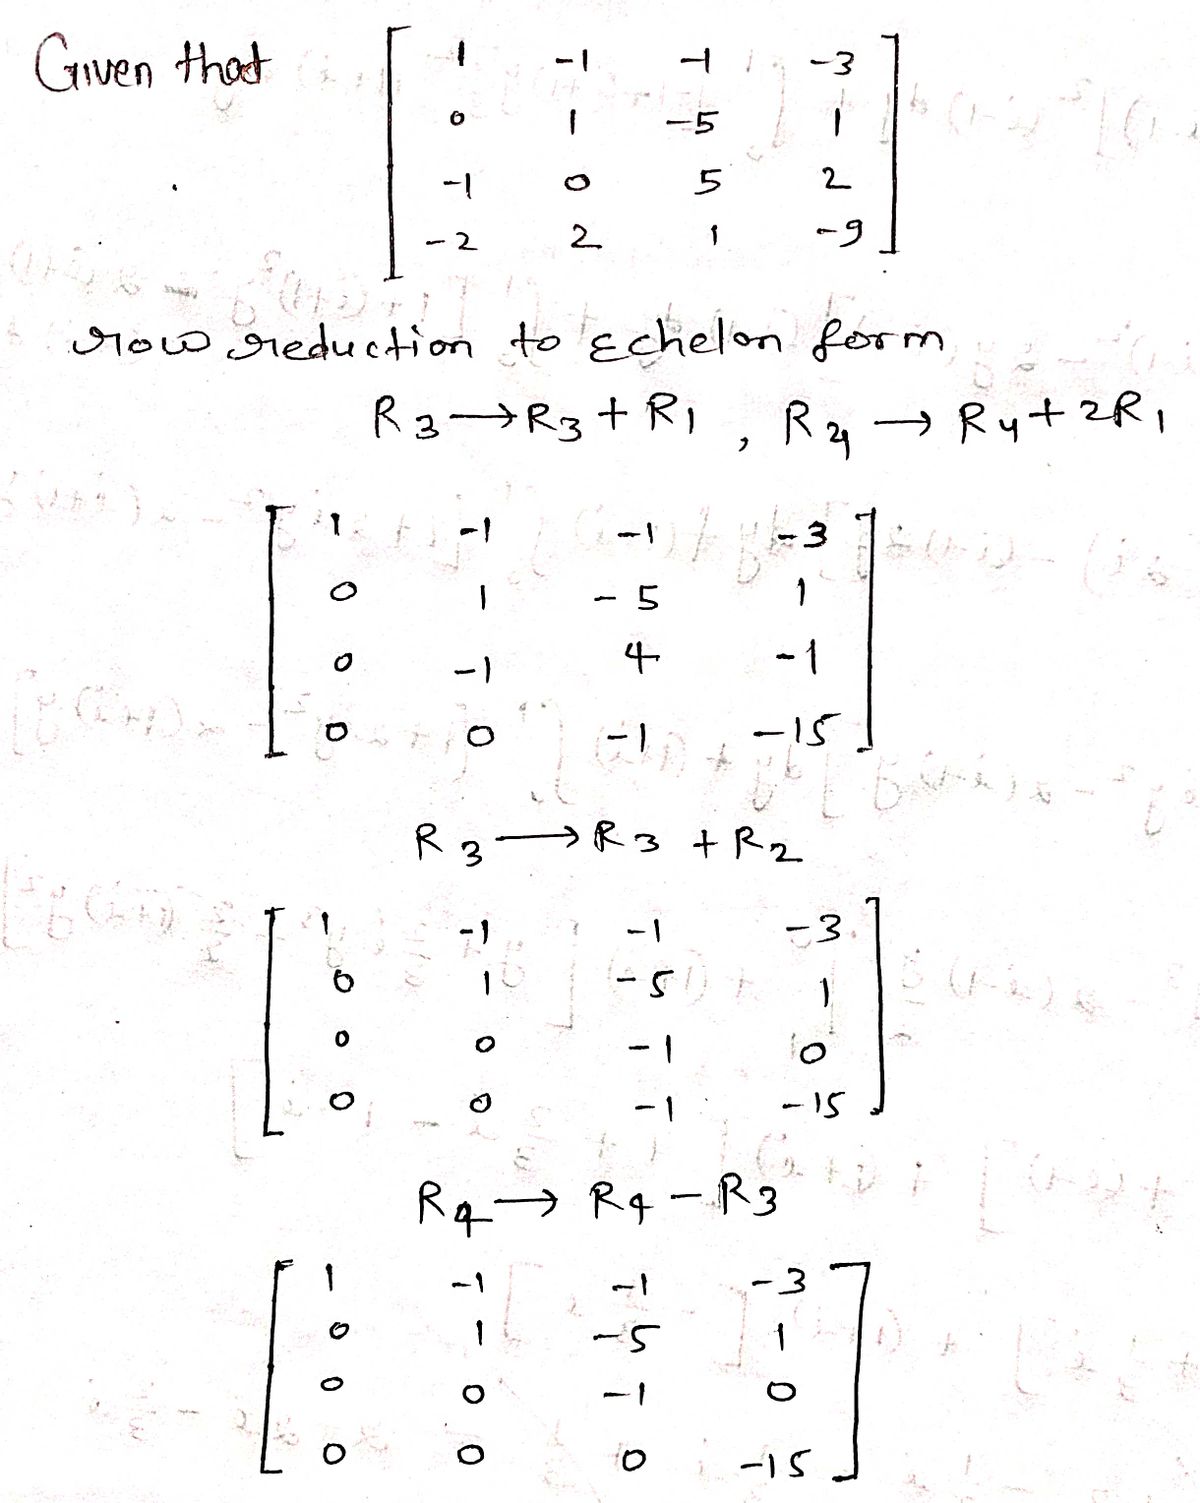 Given that
[ 1 -1 -1 -3
0 1 -5 1
-1 0 5 2
-2 2 1 -9 ]
row reduction to Echelon form
R3 → R3 + R1 , R4 → R4 + 2R1
[ 1 -1 -1 -3
0 1 -5 1
0 -1 4 -1
0 0 -1 -15 ]
R3 → R3 + R2
[ 1 -1 -1 -3
0 1 -5 1
0 0 -1 0
0 0 -1 -15 ]
R4 → R4 - R3
[ 1 -1 -1 -3
0 1 -5 1
0 0 -1 0
0 0 0 -15 ]